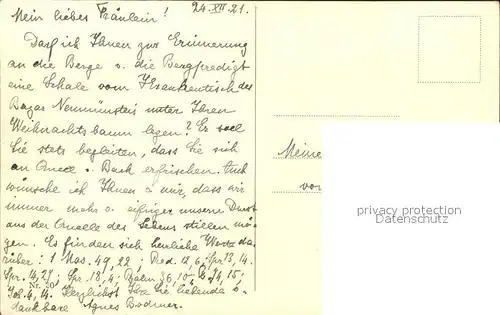 Mein liebes Fräulein! 24. XII. 21.
Darf ich Ihnen zur Erinnerung
an die Berge u. die Bergpredigt
eine Schale vom Krankentisch des
Bazar Neumünster unter Ihren
Weihnachtsbaum legen? Er soll
Sie stets begleiten, dass Sie sich
an Quell u. Bach erfrischen. Auch
wünsche ich Ihnen u. mir, dass wir
immer mehr u. eifriger unsere Durst
aus der Quelle des Lebens stillen mö-
gen. Es finden sich herrliche Worte da-
rüber: 1 Mos. 49, 22; Pred. 12, 6; Spr. 13, 14.
Spr. 14, 27; Spr. 18, 4; Psalm 36, 10;
Joh. 4, 14. Herzlichst Ihre Sie liebende u.
dankbare Agnes Bodmer.
Nr. 20
Meine
vo
privacy protection
Datenschutz